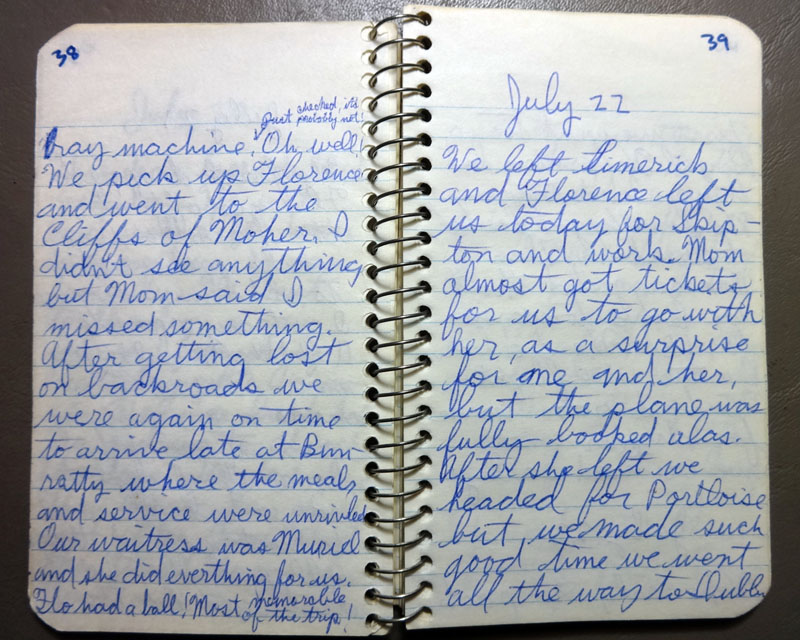 38
just checked, it's
probably not!
tray machine. Oh well!
We pick up Florence
and went to the
Cliffs of Moher. I
didn't see anything
but Mom said I
missed something.
After getting lost
on backroads we
were again on time
to arrive late at Bun-
ratty where the meal
and service were unrivled
Our waitress was Muriel
and she did everthing for us.
Flo had a ball! Most memorable
of the trip!
39
July 22
We left Limerick
and Florence left
us today for Skip-
ton and work. Mom
almost got tickets
for us to go with
her, as a surprise
for me and her,
but the plane was
fully booked alas.
After she left we
headed for Portloise
but, we made such
good time we went
all the way to Dublin